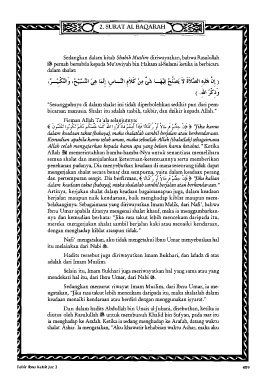 2. SURAT AL BAQARAH
Sedangkan dalam kitab Shahih Muslim diriwayatkan, bahwa Rasulullah
ﷺ pernah bersabda kepada Mu'awiyah bin Hakam al-Sulami ketika ia berbicara
dalam shalat:
إِنَّ هَذِهِ الصَّلَاةَ لَا يَصْلُحُ فِيهَا شَيْءٌ مِنْ كَلَامِ النَّاسِ، إِنَّمَا هِيَ التَّسْبِيحُ، وَالتَّكْبِيرُ،
وَذِكْرُ اللهِ.
"Sesungguhnya di dalam shalat ini tidak diperbolehkan sedikit pun dari pem-
bicaraan manusia. Shalat itu adalah tasbih, takbir, dan dzikir kepada Allah."
Firman Allah Ta'ala selanjutnya: "Jika kamu
dalam keadaan takut (bahaya), maka shalatlah sambil berjalan atau berkendaraan.
Kemudian apabila kamu telah aman, maka sebutlah Allah (shalatlah) sebagaimana
Allah telah mengajarkan kepada kamu apa yang belum kamu ketahui." Ketika
Allah ﷻ memerintahkan hamba-hamba-Nya untuk senantiasa memelihara
semua shalat dan menjalankan ketentuan-ketentuannya serta memberikan
penekanan padanya, Dia menyebutkan keadaan di mana seseorang tidak dapat
mengerjakan shalat secara benar dan sempurna, yaitu dalam keadaan perang
dan pertempuran sengit. Dia berfirman, "Jika kalian
dalam keadaan takut (bahaya), maka shalatlah sambil berjalan atau berkendaraan."
Artinya, kerjakan shalat dalam keadaan bagaimanapun juga, dalam keadaan
berjalan maupun naik kendaraan, baik menghadap kiblat maupun mem-
belakanginya. Sebagaimana yang diriwayatkan Imam Malik, dari Nafi', bahwa
Ibnu Umar apabila ditanya mengenai shalat khauf, maka ia menggambarkan-
nya dan kemudian berkata: "Jika rasa takut lebih mencekam daripada itu,
mereka mengerjakan shalat sambil berjalan kaki atau menaiki kendaraan,
dengan menghadap kiblat ataupun tidak."
Nafi' mengatakan, aku tidak mengetahui Ibnu Umar menyebutkan hal
itu melainkan dari Nabi ﷺ.
Hadits tersebut juga diriwayatkan Imam Bukhari, dan lafadz di atas
adalah dari Imam Muslim.
Selain itu, Imam Bukhari juga meriwayatkan hal yang sama atau yang
mendekati hal itu, dari Ibnu Umar, dari Nabi ﷺ.
Sedangkan menurut riwayat Imam Muslim, dari Ibnu Umar, ia me-
ngatakan, "Jika rasa takut lebih mencekam daripada itu, maka shalatlah dalam
keadaan menaiki kendaraan atau berdiri dengan menggunakan isyarat."
Dan dalam hadits Abdullah bin Unais al-Juhani, disebutkan, ketika ia
diutus oleh Rasulullah ﷺ untuk membunuh Khalid bin Sufyan, pada saat itu
ia menghadap ke Arafah. Ketika ia sedang menghadap ke Arafah, datang waktu
shalat Ashar. Ia mengatakan, "Aku khawatir kehabisan waktu Ashar, maka aku
Tafsir Ibnu Katsir Juz 2
489